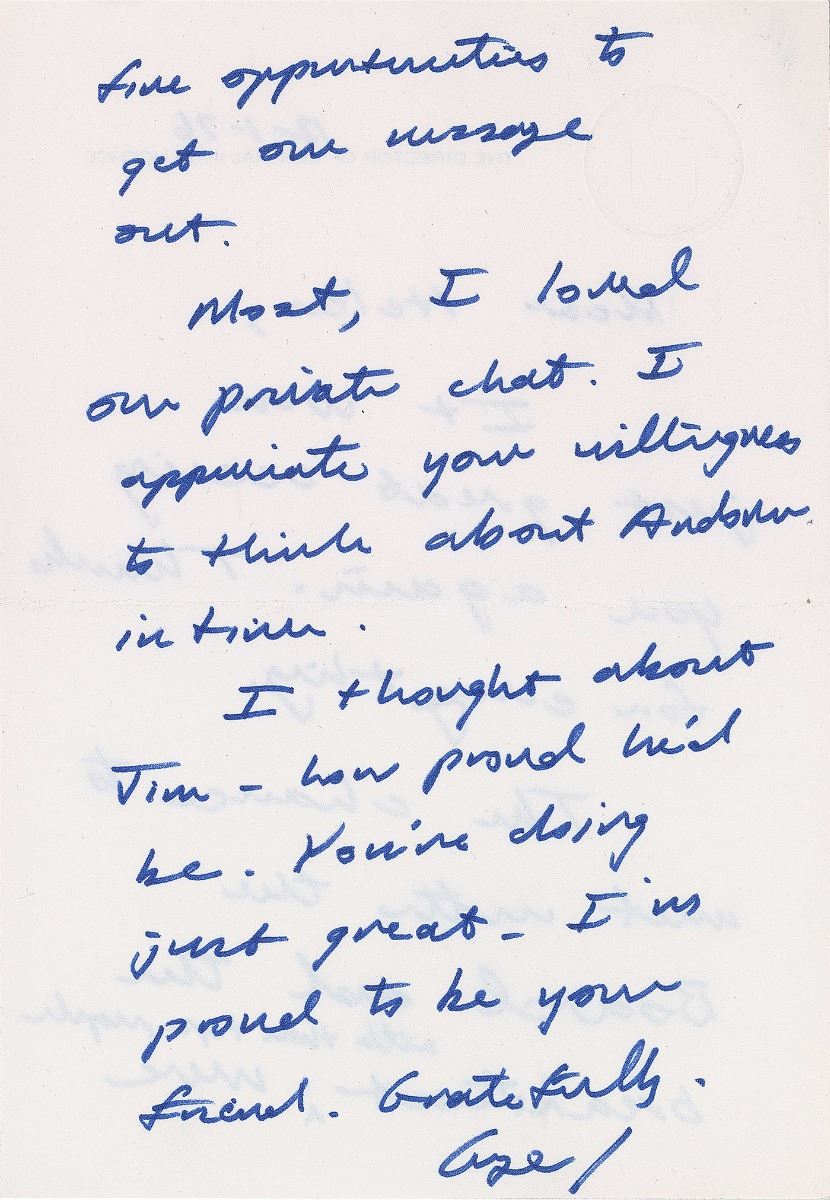 fine opportunities to
get our message
out.
Most, I loved
our private chat. I
appreciate your willingness
to think about Andover
in time.
I thought about
Jim – how proud he'd
be. You're doing
just great – I'm
proud to be your
friend. Gratefully.